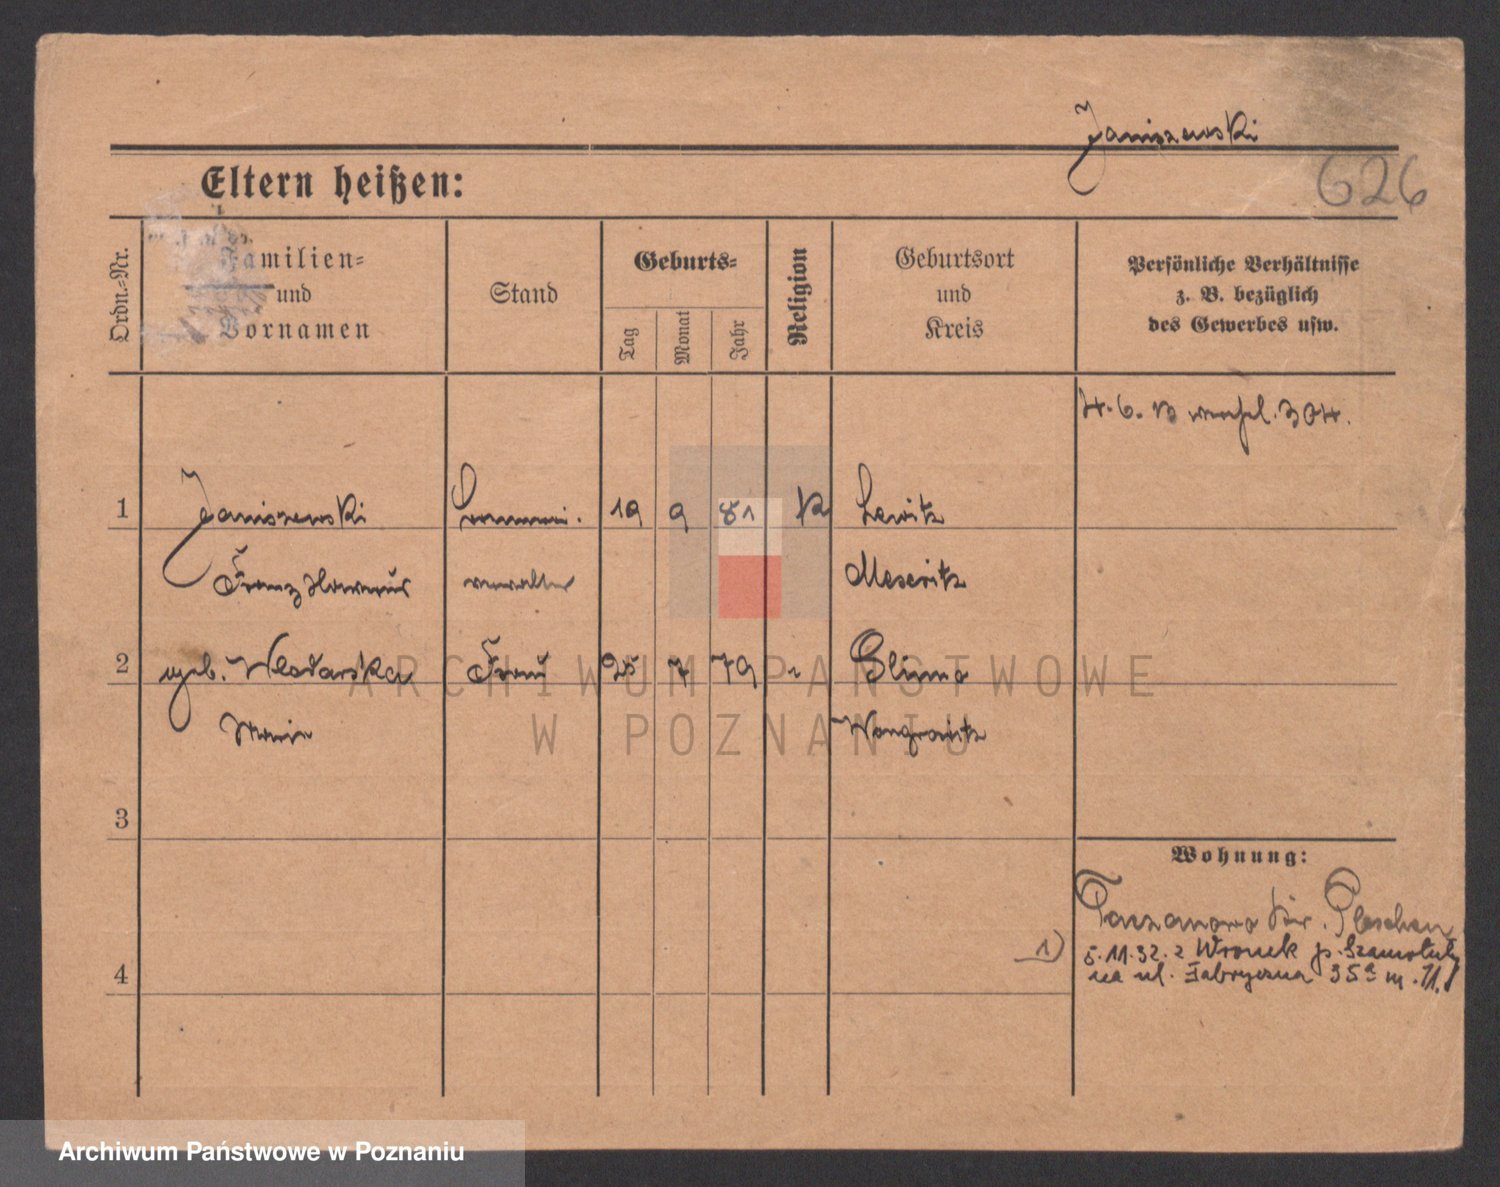 Janiszewski
626
Eltern heißen:
Ordn.-Nr.
Familien-
und
Vornamen
Stand
Geburts-
Tag
Monat
Jahr
Religion
Geburtsort
und
Kreis
Persönliche Verhältnisse
z. B. bezüglich
des Gewerbes usw.
304.
1 Janiszewski 19 9 81 K Lewitz
Franz verwalter Meseritz
2 geb. Frau 25 7 79 "
Maria Wongrowitz
3
Wohnung:
Kr. Pleschen
1) 5.11.32. z Wronek p. Szamotuły
4 na ul. Fabryczna 35a m. 11.
ARCHIWUM PAŃSTWOWE
W POZNANIU
Archiwum Państwowe w Poznaniu